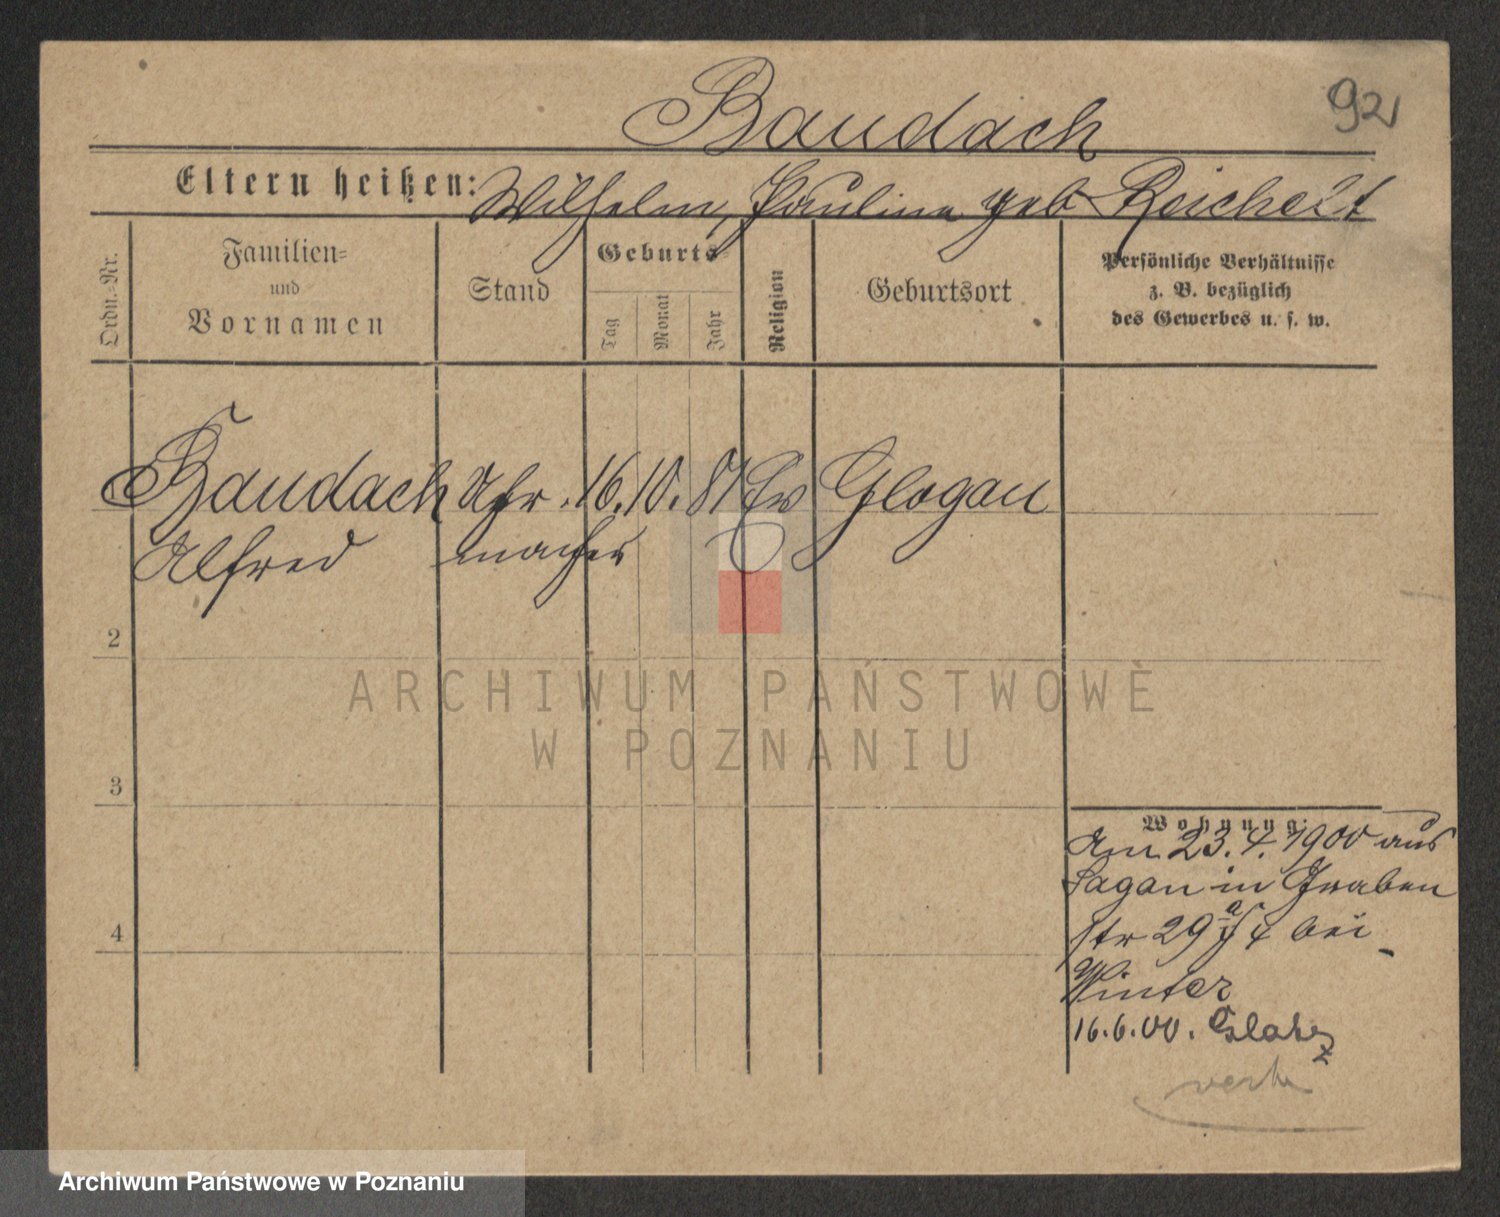 92
Baudach
Eltern heißen: Wilhelm, Pauline geb Reichelt
Ordn.-Nr.
Familien=
und
Vornamen
Stand
Geburts=
Tag
Monat
Jahr
Religion
Geburtsort
Persönliche Verhältnisse
z. B. bezüglich
des Gewerbes u. s. w.
1 Baudach Uhr 16. 10. 81 Ev Glogau
Alfred macher
2
3
4
Wohnung:
Am 23. 4. 1900 aus
Sagan in Graben
str 29 bei
Winter
16.6.00. Glatz
ARCHIWUM PAŃSTWOWE
W POZNANIU
Archiwum Państwowe w Poznaniu